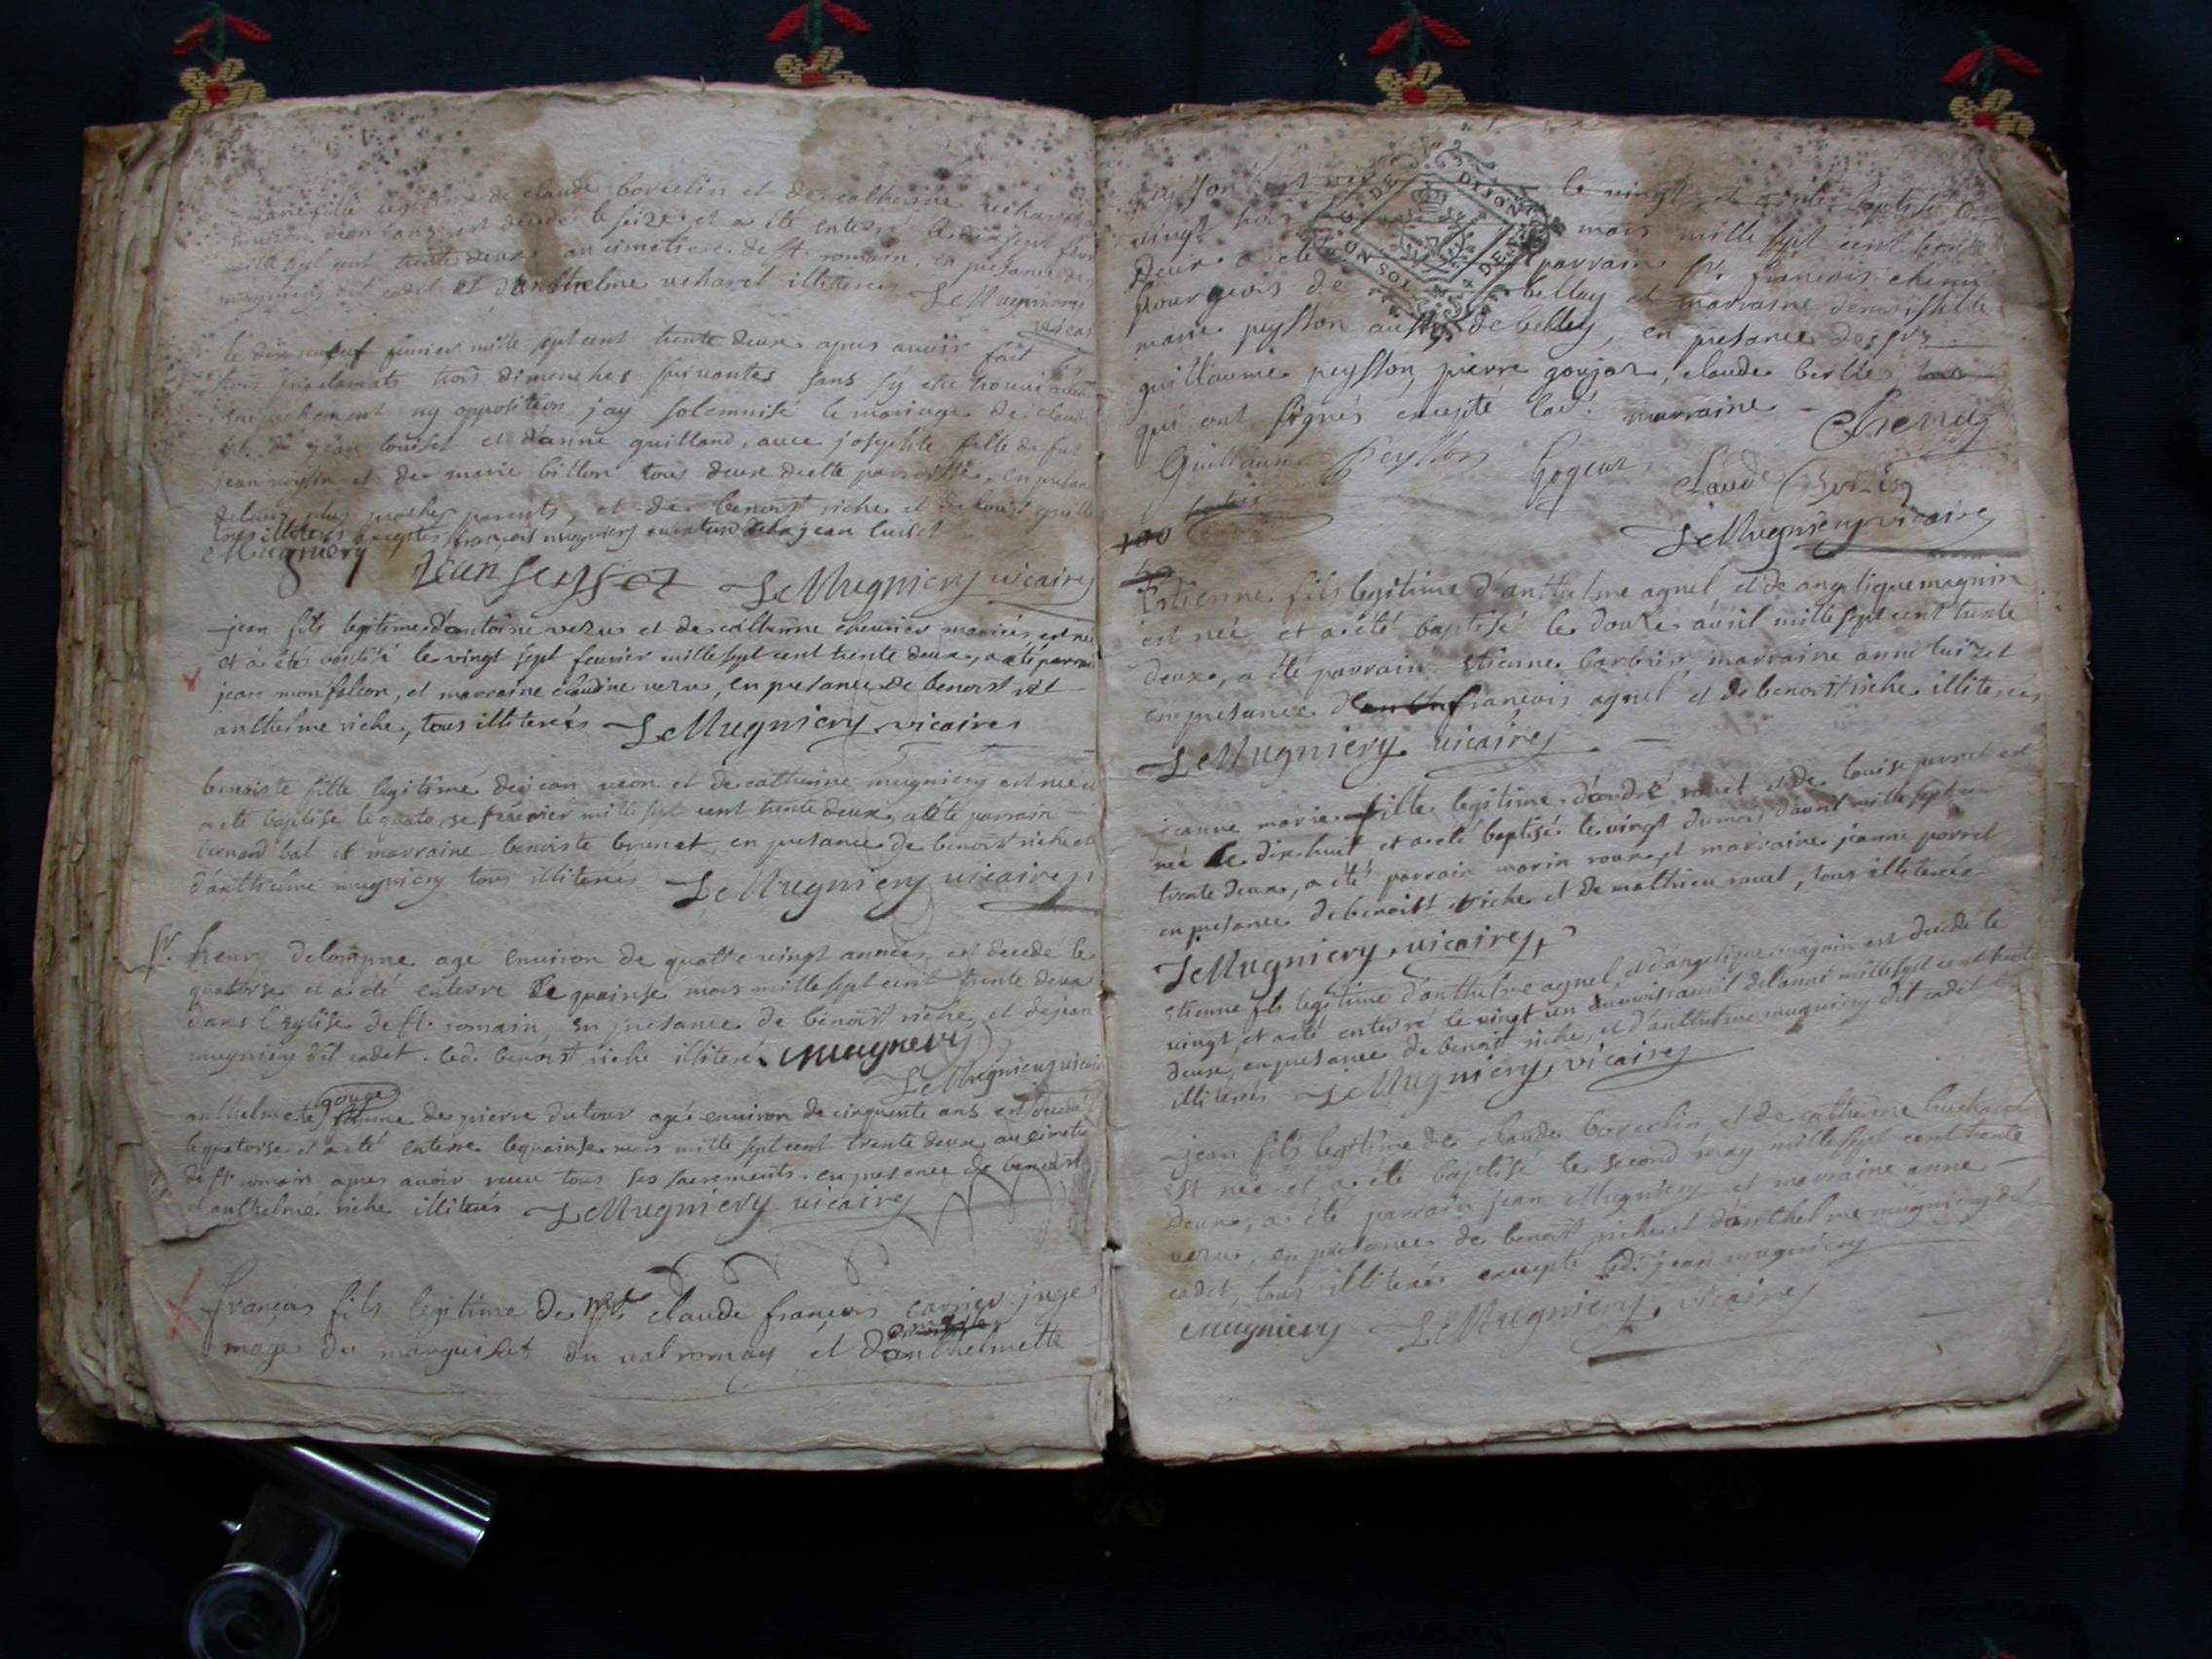 fille legitime de claude borcelin et de catherine uchard
environ d'un ans est decede le seize et a été enterré le dix sept
mille sept cent trente deux au cimetiere de st. romain, en presance de
mugniery dit cadet et d'anthelme uchard illiterés LeMugniery
vicaire
le dix neuf fevrier mille sept cent trente deux apres avoir fait les
trois proclamats trois dimenches suivantes sans s'y etre trouvé
enpechement ny opposition jay solemnisé le mariage de claude
de jean louiset et d'anne guilland, avec josephte fille de fut
jean voysin et de marie billon tous deux de cette parroisse, en presance
de leurs plus proches parents, et de benoist riche et de
tous illiteres exceptés françois mugniery jean luiset
Mugniery Jean LeMugniery vicaire
jean fils legitime d'antoine veru et de catherine chevrier mariés est né
et a été baptisé le vingt sept fevrier mille sept cent trente deux, a été parrain
jean monfalcon, et marraine claudine veru, en presance de benoist et
anthelme riche, tous illiterés LeMugniery vicaire
benoiste fille legitime de jean veon et de catherine mugniery est née
a été baptisé le quatorse fevrier mille sept cent trente deux, a été parrain
bernard bal et marraine benoiste brunet en presance de benoist riche et
d'anthelme mugniery tous illiterés LeMugniery vicaire
sr. henry delompne age environ de quattre vingt années, est decedé le
quatorse et a été enterré le quainse mars mille sept cent trente deux
dans l'eglise de st. romain, en presance de benoist riche, et de jean
mugniery dit cadet. led. benoist riche illiteré. Mugniery
LeMugniery vicaire
anthelmete gouge femme de pierre dutour agé environ de cinquante ans est decedé
le quatorse et a été enterré le quainse mars mille sept cent trente deux au cimetiere
de st romain apres avoir receu tous ses sacrements. en presance de benoist
d'anthelme riche illiterés LeMugniery vicaire
françois fils legitime de claude françois carrier juge
mage du marquisat du valromay et d'anthelmette
peysson est née le vingt et baptisé le
vingt mars mille sept cent trente
deux a été parrain sr. françois chenuz
bourgeois de bellay et marraine demoiselle
marie peysson aussy de belley, en presance des srs
guillaume peysson, pierre goujar, claude berlie,
qui ont signés excepté lad. marraine - Chenuz
Guillaume Peysson Gogear Claude
LeMugniery vicaire
100
Estienne fils legitime d'anthelme agnel et de angelique magnin
est née et a été baptisé le douze avril mille sept cent trente
deux, a été parrain etienne barbier marraine anne luizet
en presance de françois agnel et de benoist riche illiterés
LeMugniery vicaire
jeanne marie fille legitime d'andré ravet et de louise perret est
née le dix huit et a été baptisé le vingt du mois d'avril mille sept cent
trente deux, a été parrain marin roux et marraine jeanne perret
en presance de benoist riche et de mathieu ravet, tous illiterés
LeMugniery vicaire
etienne fils legitime d'anthelme agnel, et d'angelique magnin est decedé le
vingt, et a été enterré le vingt un du mois d'avril de l'anné mille sept cent trente
deux, en presance de benoist riche, et d'anthelme mugniery dit cadet
illiterés LeMugniery vicaire
jean fils legitime de claude borcelin et de catherine huchard
est née et a été baptisé le second may mille sept cent trente
deux, a été parrain jean Mugniery et marraine anne
veru, en presance de benoist riche et d'anthelme mugniery dit
cadet, tous illiterés excepté led. jean mugniery
Mugniery LeMugniery vicaire